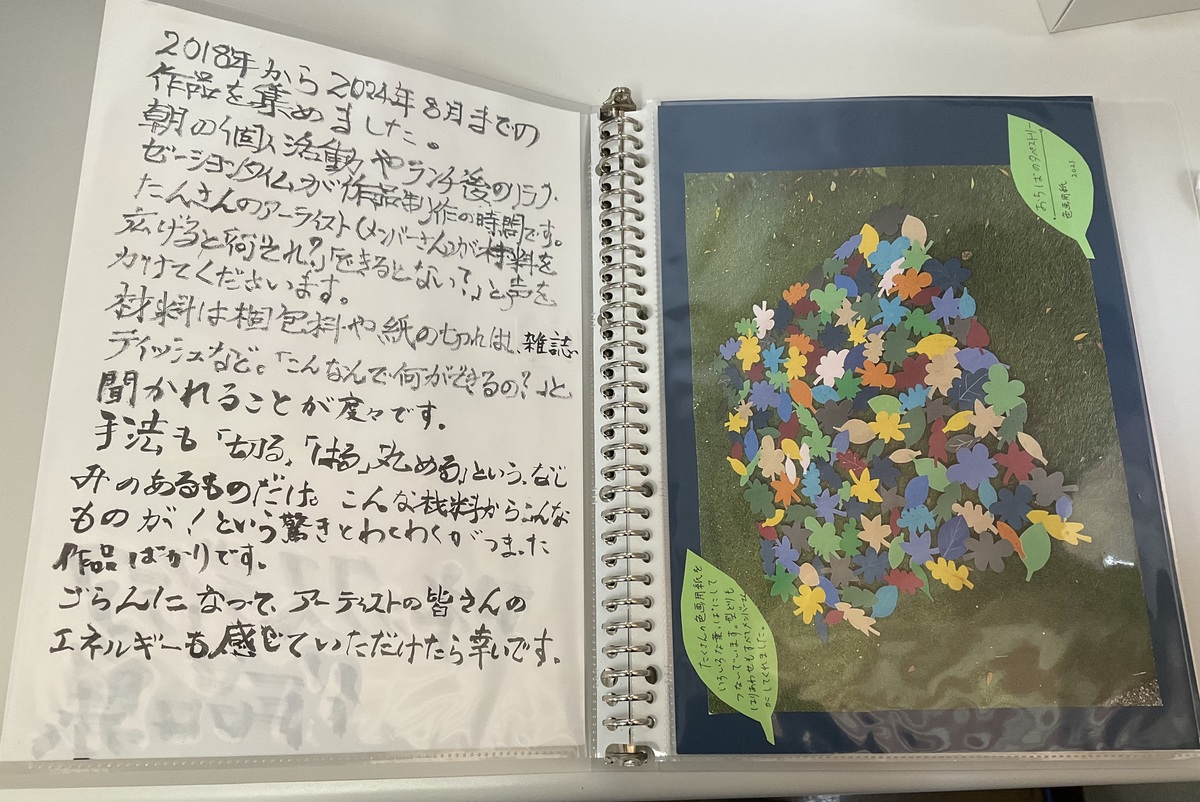 2018年から2024年8月までの
作品を集めました。
朝の個人活動やランチ後のリラク
ゼーションタイムが作品制作の時間です。
たくさんのアーティスト(メンバーさん)が材料を
広げると「何それ?」「できることない?」と声を
かけてくださいます。
材料は梱包料や紙の切れはし、雑誌
ティッシュなど。「こんなんで何ができるの?」と
聞かれることが度々です。
手法も「切る」「はる」「丸める」という、なじ
みのあるものだけ。こんな材料からこんな
ものが!という驚きとわくわくがつまった
作品ばかりです。
ごらんになって、アーティストの皆さんの
エネルギーも感じていただけたら幸いです。
おちばのタペストリー
色画用紙 2023
たくさんの色画用紙を
いろいろな葉っぱにして
つないでいます。型どりも
はりあわせもすべてメンバーさん
がしてくれました。